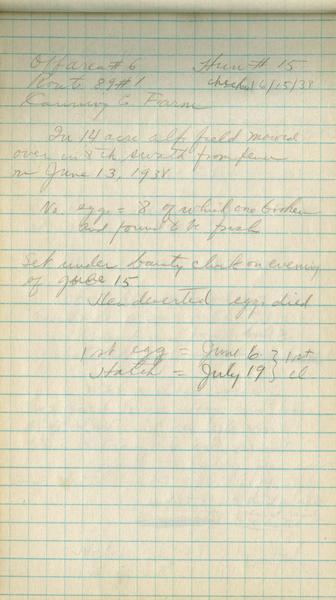 Off area # 6 Hun # 15
Route 89 #1 checked 6/15/38
Farm
In 14 acre alf. field mowed
over in 8th swath from fence
on June 13, 1938
No. eggs = 8 of which one broken
and found to be fresh
Set under banty cluck on evening
of June 15
Hen deserted eggs died
1st egg = June 6 } 1st
Hatch = July 19 } cl